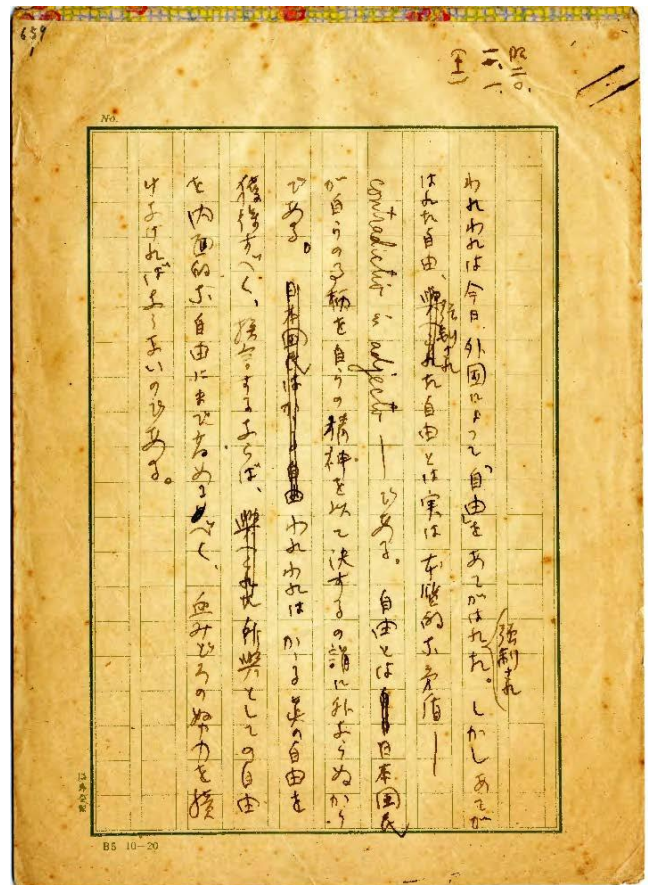 659
1
昭二〇、
一一、一、
No.
われわれは今日外国によつて「自由」をあてがはれた。しかしあてが
強制され
はれた自由、強制された自由とは実は本質的な矛盾―
contradictio in adjecto―である。自由とは日本国民
が自らの事柄を自らの精神を以て決するの謂に外ならぬから
である。われわれはかゝる真の自由を
獲得すべく、換言するならば、所与としての自由
を内面的な自由にまで高めるべく、血みどろの努力を続
けなければならないのである。
B5 10-20